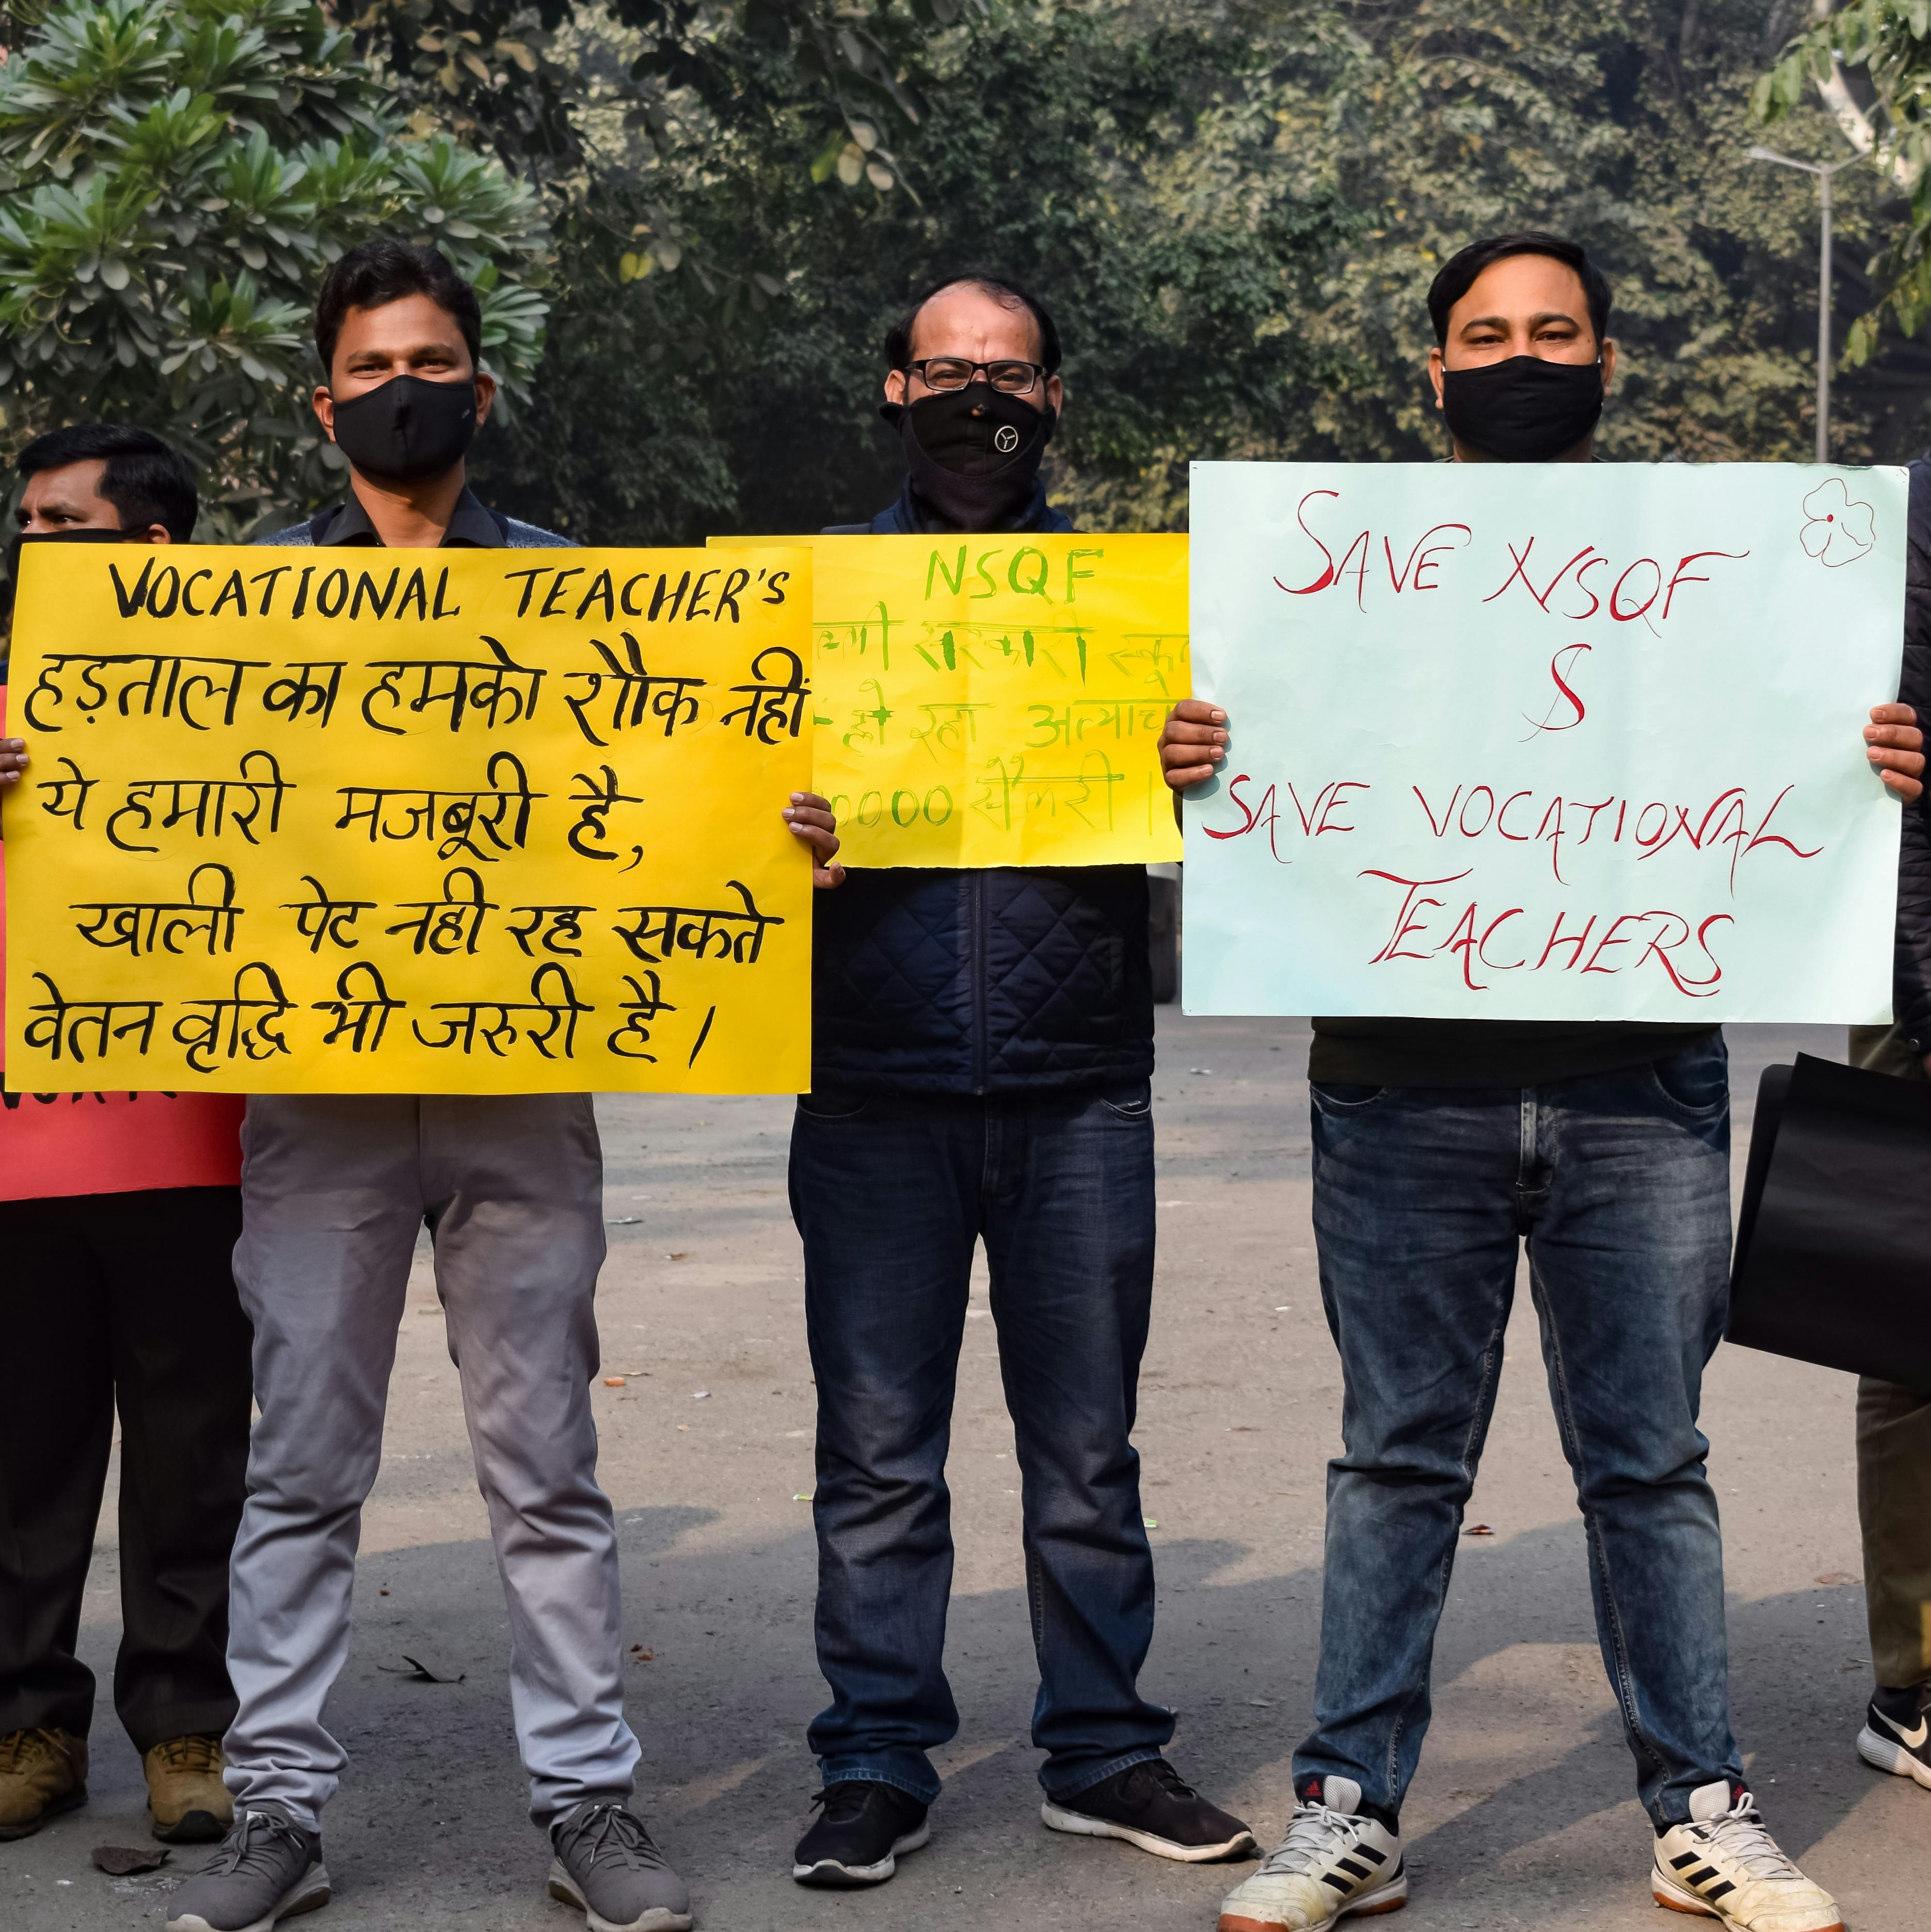 VOCATIONAL TEACHER'S
हड़ताल का हमको शौक नहीं
ये हमारी मजबूरी है,
खाली पेट नही रह सकते
वेतन वृद्धि भी जरुरी है।
NSQF
सरकारी
हो रहा
0000 सैलरी।
SAVE NSQF
&
SAVE VOCATIONAL
TEACHERS